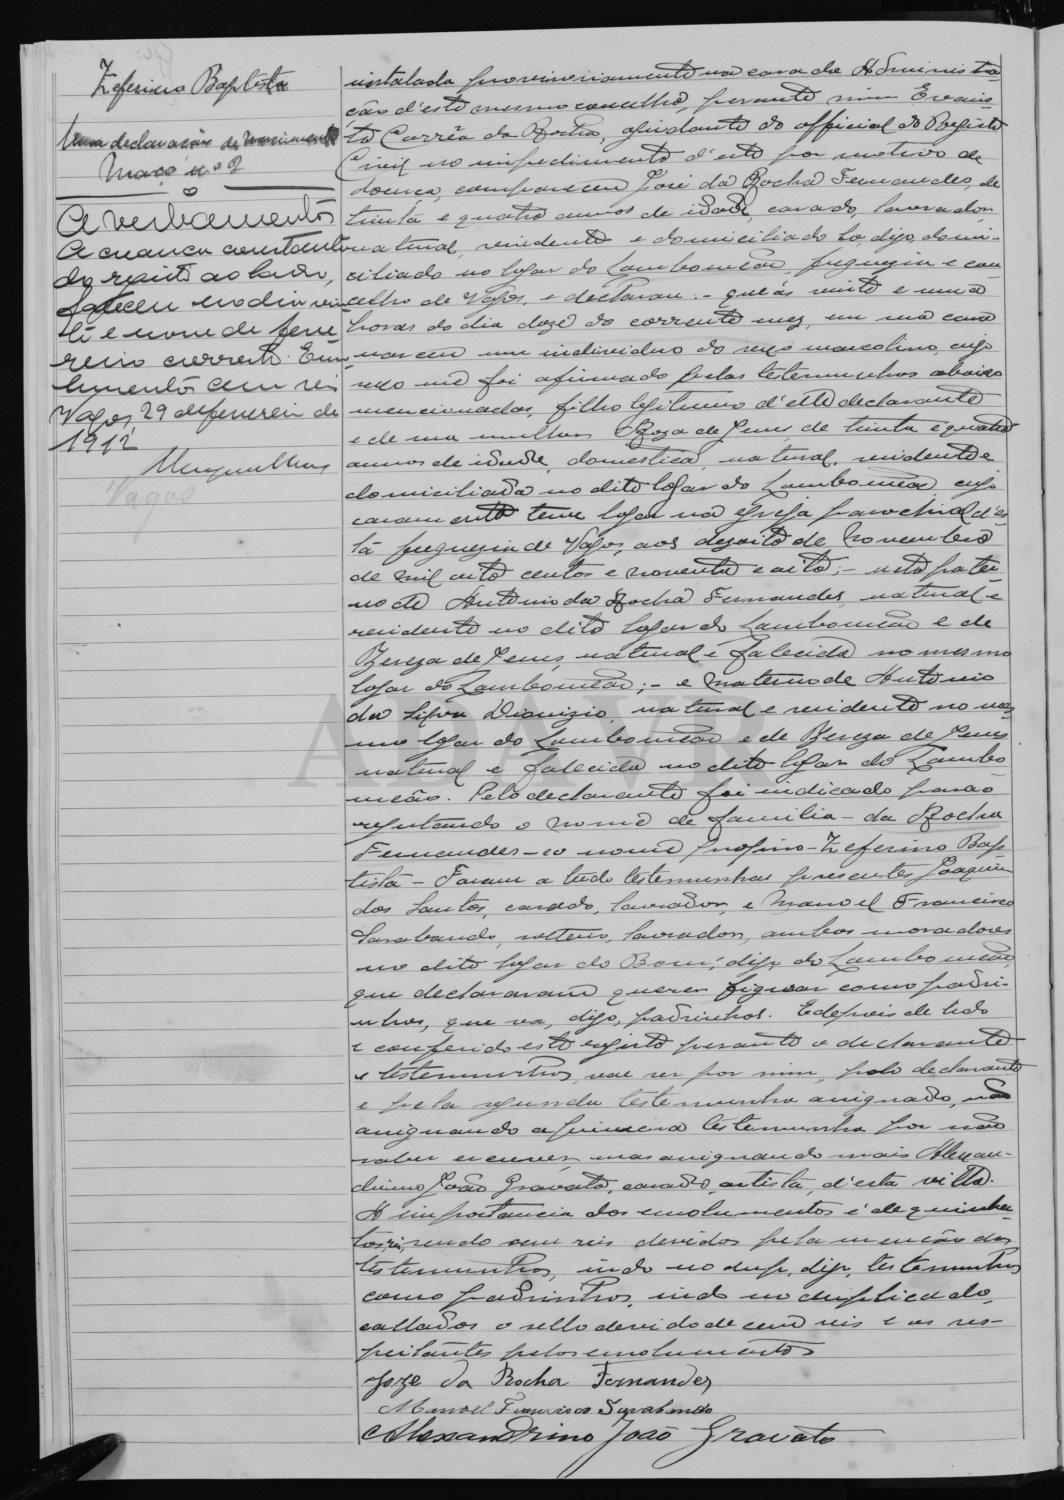 Zeferino Baptista
Uma declaração de nascimento
Maço nº 2
Averbamento
A creança constante
do registo ao lado,
faleceu no dia vin
te e nove de feve
reiro corrente. Emo
lumentos cem reis
Vagos, 29 de fevereiro de
1912
Vagos
installada provisoriamente na casa da Administra
ção d'este mesmo concelho, perante mim Evaris
to Corrêa da Rocha, ajudante do official do Registo
Civil no impedimento d'este por motivo de
doença, compareceu José da Rocha Fernandes, de
trinta e quatro annos de idade, casado, lavrador,
natural, residente e domiciliado lo, digo, domi-
ciliado no logar do Lombomeão, freguezia e con
celho de Vagos, e declarou: - que ás vinte e uma
horas do dia doze do corrente mez, em sua casa
nasceu um individuo do sexo masculino, cujo
sexo me foi afirmado pelas testemunhas abaixo
mencionadas, filho legitimo d'elle declarante
e de sua mulher Roza de Jesus, de trinta e quatro
annos de idade, domestica, natural, residente e
domiciliada no dito logar do Lombomeão cujo
casamento teve logar na egreja parochial d'es
tá freguezia de Vagos, aos dezoito de Novembro
de mil oito centos e noventa e oito; - neto pater
no de Antonio da Rocha Fernandes, natural e
residente no dito logar do Lombomeão e de
Thereza de Jesus, natural e falecida no mesmo
logar do Lombomeão; - e materno de Antonio
da Silva Dionizio, natural e residente no mes
mo logar do Lombomeão e de Thereza de Jesus
natural e falecida no dito logar do Lombo
meão. Pelo declarante foi indicado para o
registando o nome de familia - da Rocha
Fernandes - e o nome proprio - Zeferino Bap
tista - Foram a tudo testemunhas presentes Joaquim
dos Santos, casado, lavrador, e Manoel Francisco
Sarabando, solteiro, lavrador, ambos moradores
no dito logar do Bom, digo do Lombomeão,
que declararam querer figurar como padri-
nhos, que va, digo, padrinhos. E depois de lido
e conferido este registo perante o declarante
e testemunhas, vae ser por mim, pelo declarante
e pela segunda testemunha assignado, não
assignando a primeira testemunha por não
saber escrever, mas assignando mais Alexan-
drino João Gravato, casado, artista, d'esta villa.
A importancia dos emolumentos é de quinhen
tos reis, sendo cem reis devidos pela menção das
testemunhas, indo no dup, digo, testemunhas
como padrinhos, indo no duplicado,
collados o sello devido de cem reis e os res-
peitantes pelos emolumentos
Joze da Rocha Fernandes
Manoel Francisco Sarabando
Alexandrino João Gravato
ADAVR